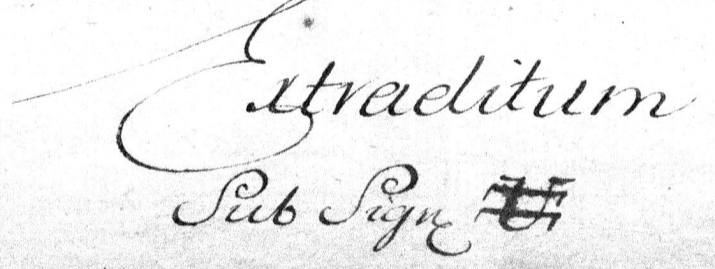 Extraditum
Sub Sign